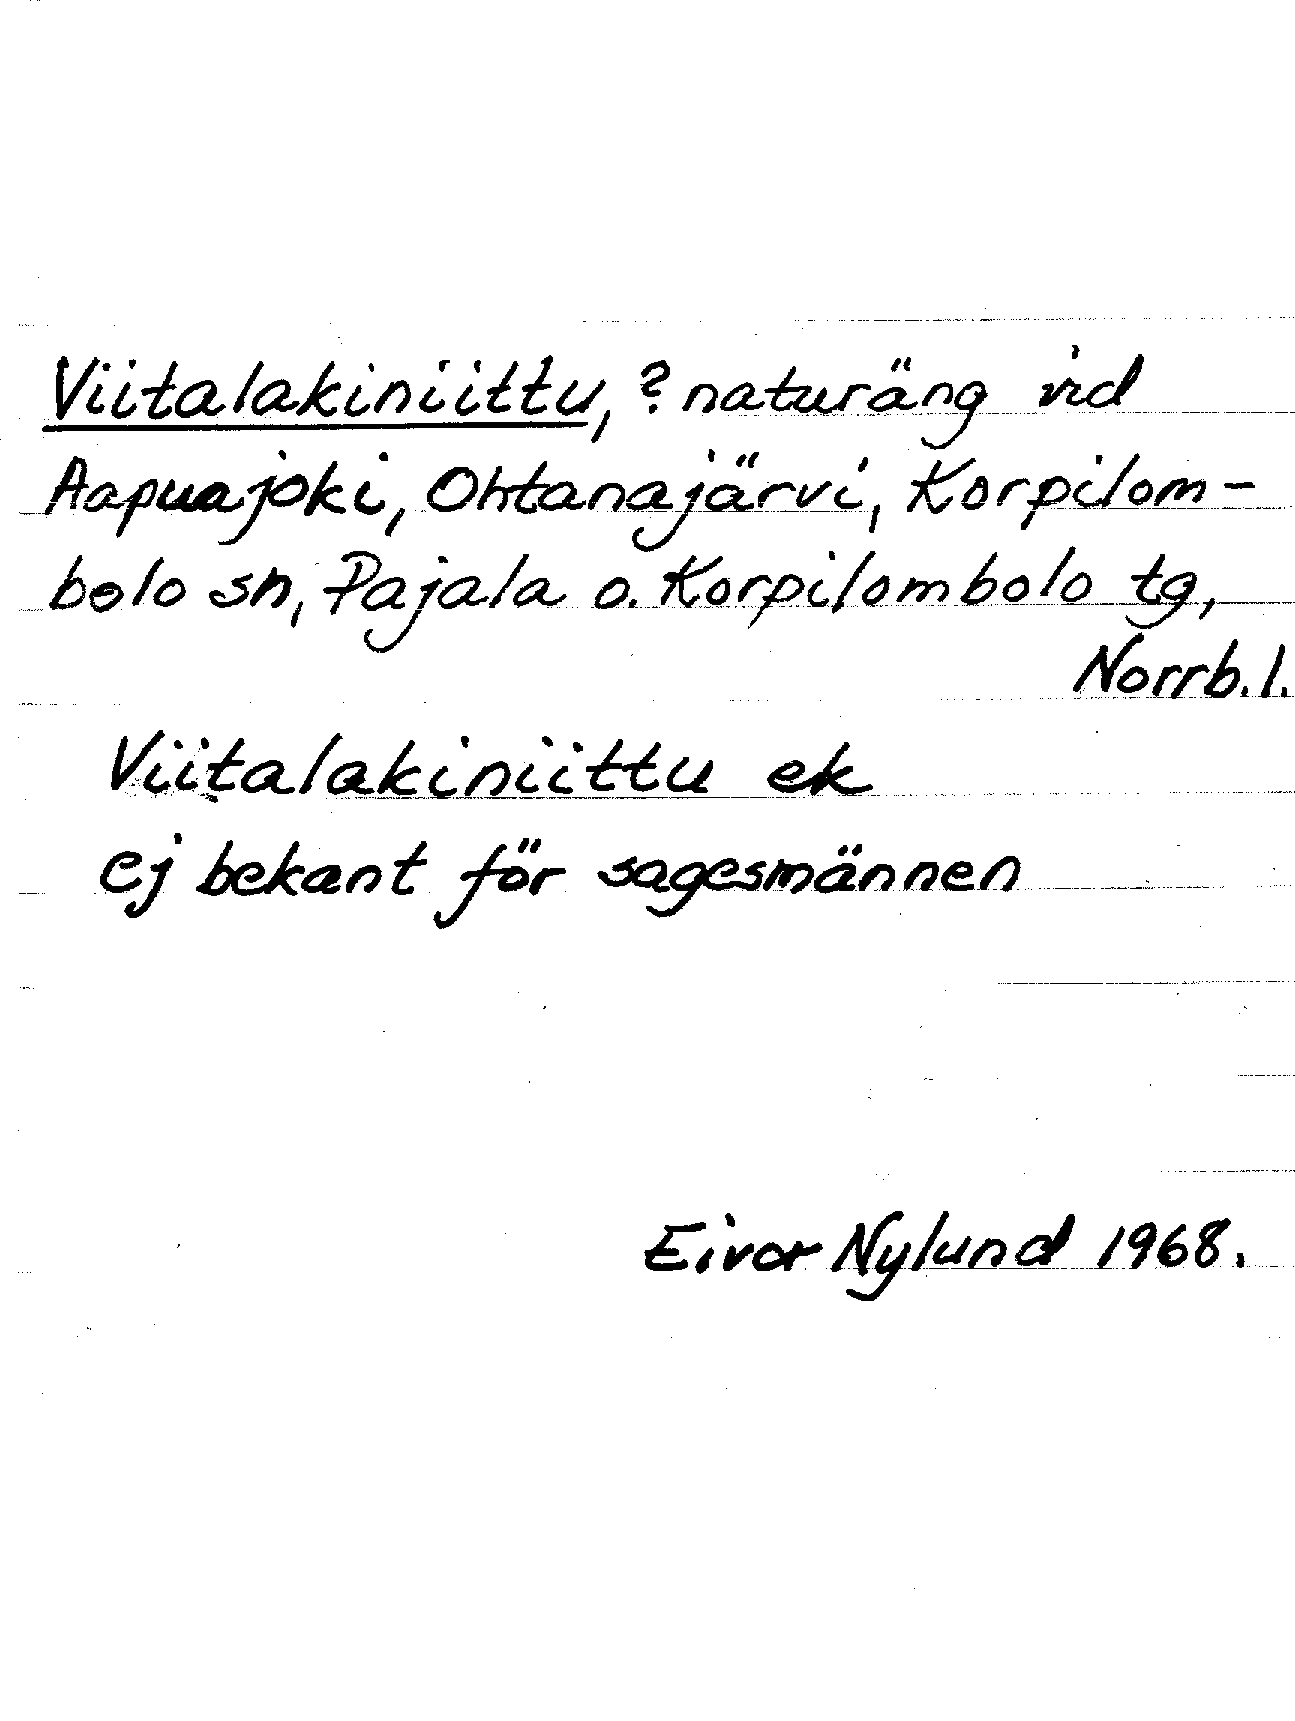 Viitalakiniittu, ? naturäng vid
Aapuajoki, Ohtanajärvi, Korpilom-
bolo sn, Pajala o. Korpilombolo tg,
Norrb. l.
Viitalakiniittu ek
ej bekant för sagesmännen
Eivor Nylund 1968.